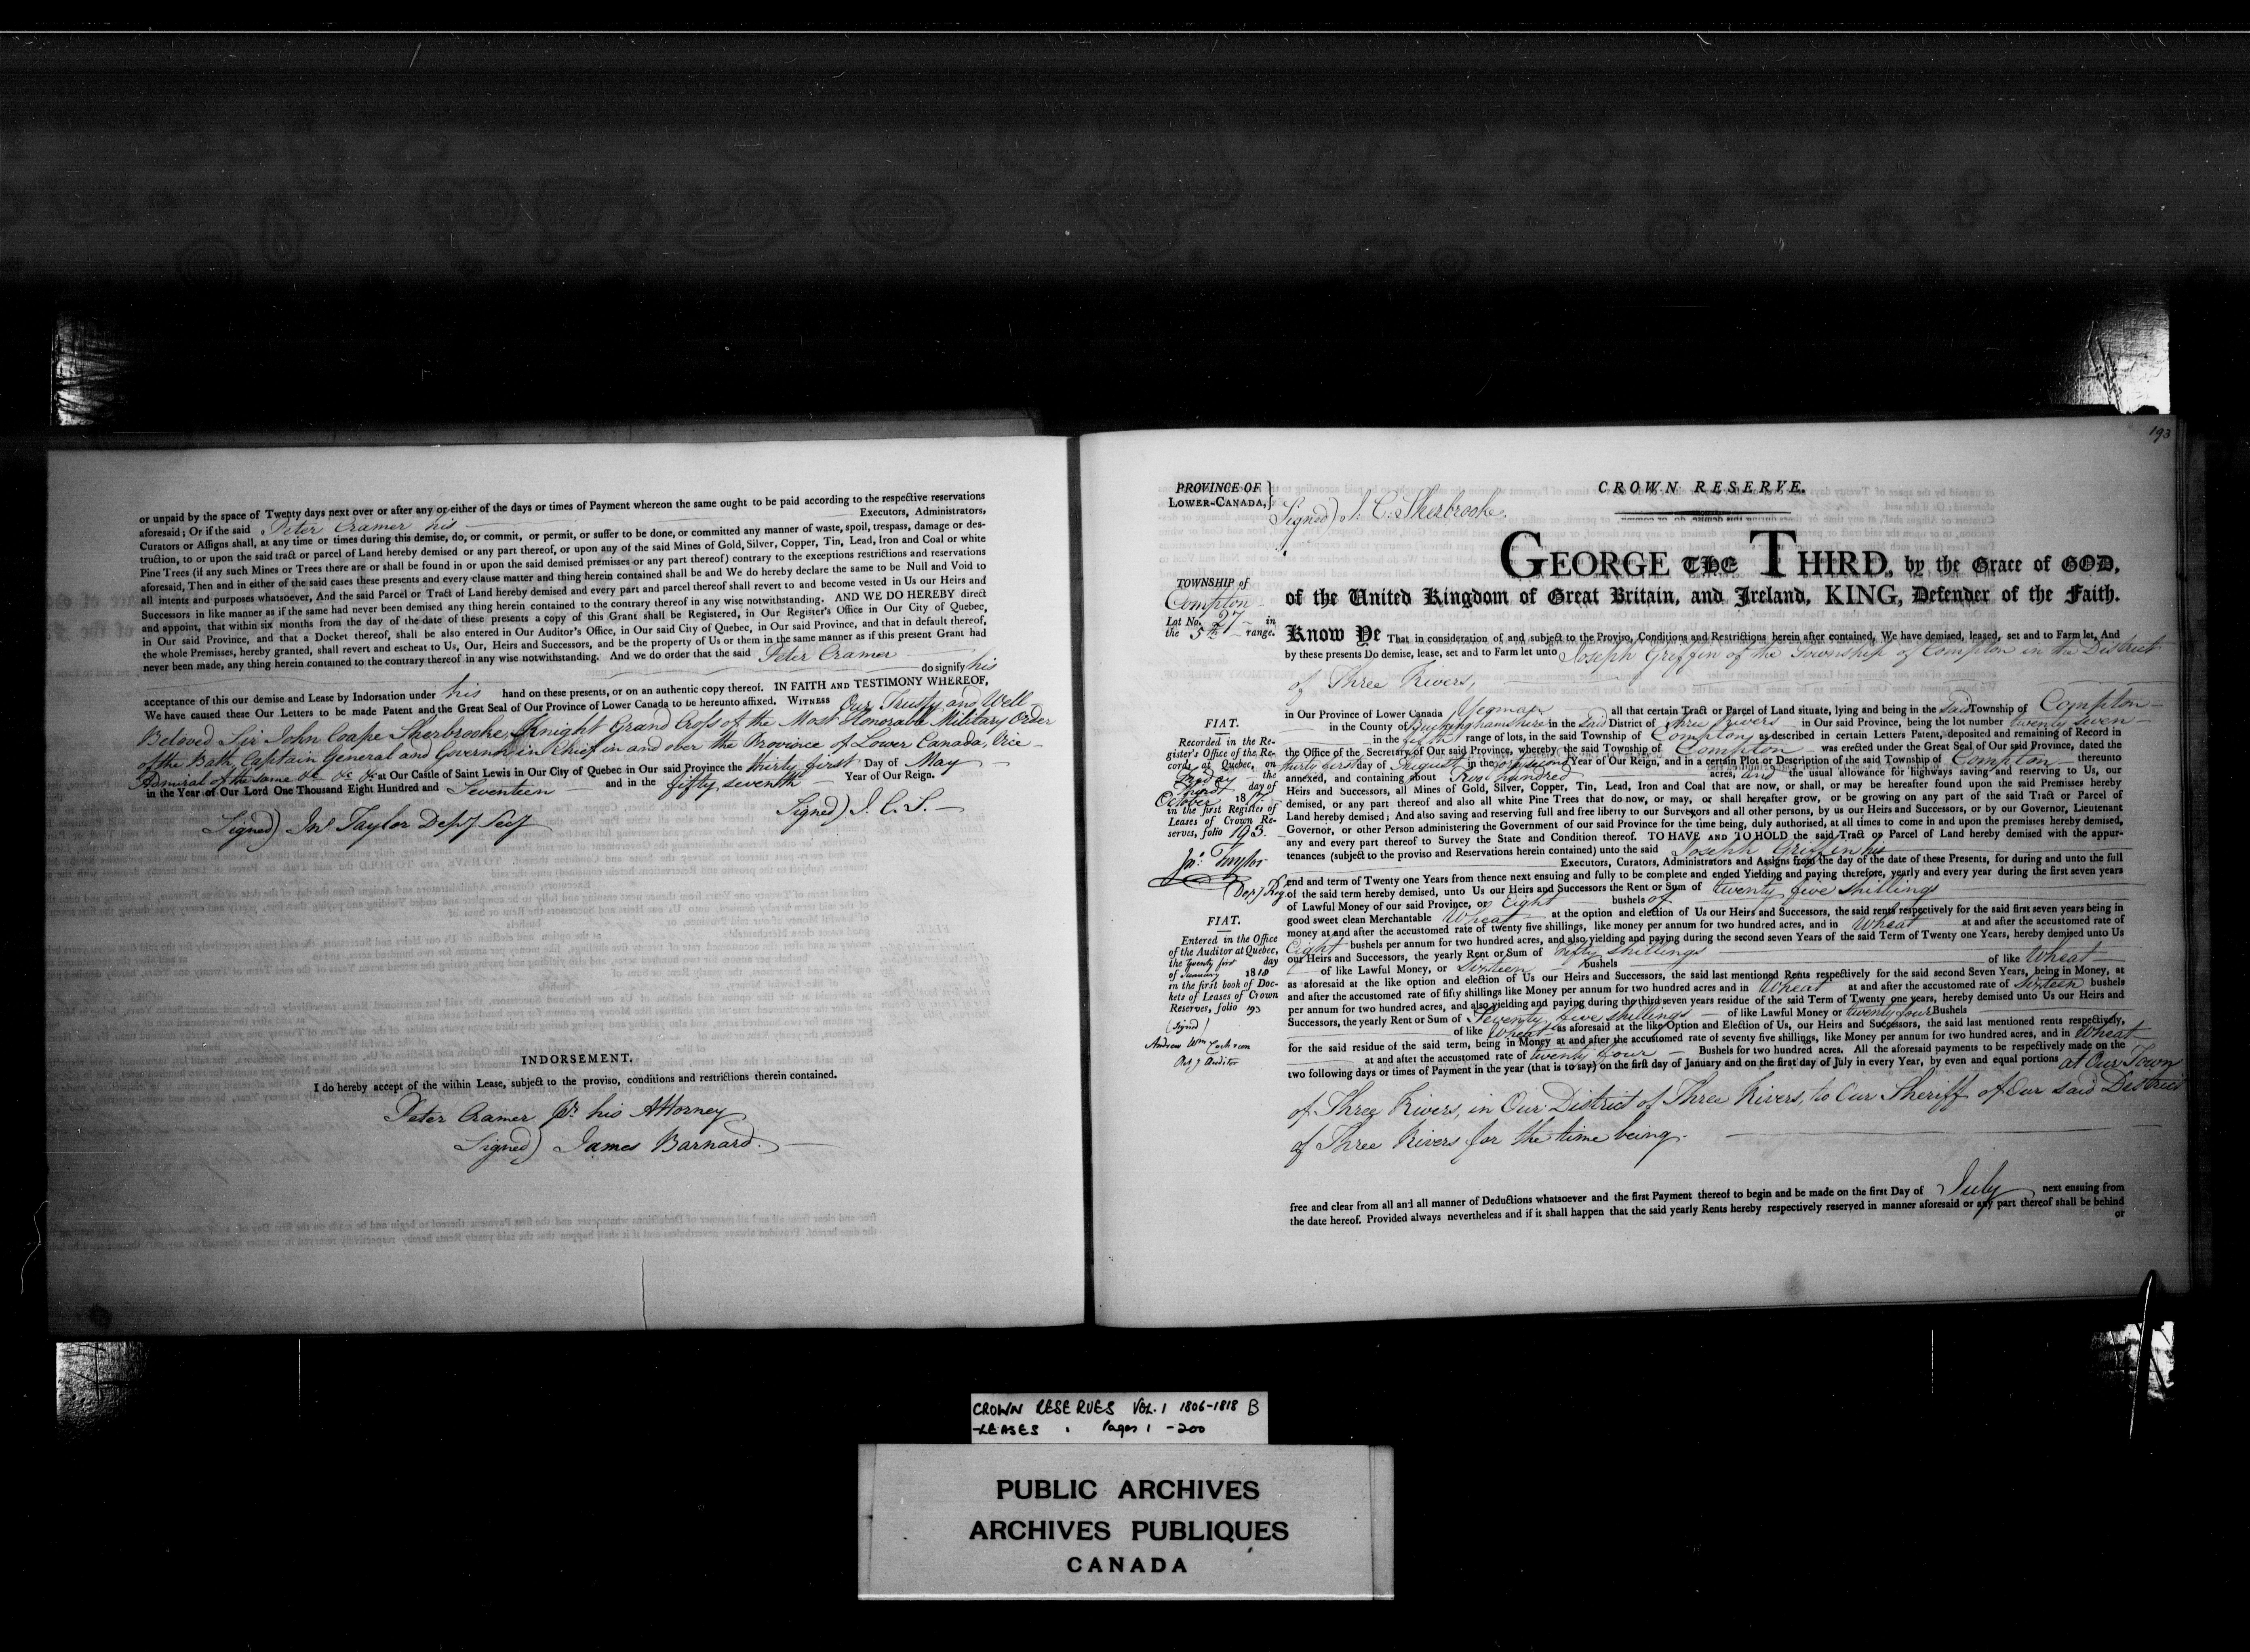 or unpaid by the space of Twenty days next over or after any or either of the days or times of Payment whereon the same ought to be paid according to the respective reservations
aforesaid; Or if the said Peter Cramer his Executors, Administrators,
Curators or Assigns shall, at any time or times during this demise, do, or commit, or permit, or suffer to be done, or committed any manner of waste, spoil, trespass, damage or des-
truction, to or upon the said tract or parcel of Land hereby demised or any part thereof, or upon any of the said Mines of Gold, Silver, Copper, Tin, Lead, Iron and Coal or white
Pine Trees (if any such Mines or Trees there are or shall be found in or upon the said demised premises or any part thereof) contrary to the exceptions restrictions and reservations
aforesaid, Then and in either of the said cases these presents and every clause matter and thing herein contained shall be and We do hereby declare the same to be Null and Void to
all intents and purposes whatsoever, And the said Parcel or Tract of Land hereby demised and every part and parcel thereof shall revert to and become vested in Us our Heirs and
Successors in like manner as if the same had never been demised any thing herein contained to the contrary thereof in any wise notwithstanding. AND WE DO HEREBY direct
and appoint, that within six months from the day of the date of these presents a copy of this Grant shall be Registered, in Our Register's Office in Our City of Quebec,
in Our said Province, and that a Docket thereof, shall be also entered in Our Auditor's Office, in Our said City of Quebec, in Our said Province, and that in default thereof,
the whole Premises, hereby granted, shall revert and escheat to Us, Our, Heirs and Successors, and be the property of Us or them in the same manner as if this present Grant had
never been made, any thing herein contained to the contrary thereof in any wise notwithstanding. And we do order that the said Peter Cramer
do signify his
acceptance of this our demise and Lease by Indorsation under his hand on these presents, or on an authentic copy thereof. IN FAITH AND TESTIMONY WHEREOF,
We have caused these Our Letters to be made Patent and the Great Seal of Our Province of Lower Canada to be hereunto affixed. WITNESS Our Trusty and Well-
Beloved Sir John Coape Sherbrooke, Knight Grand Cross of the Most Honorable Military Order
of the Bath, Captain General and Governor in Chief in and over the Province of Lower Canada, Vice-
Admiral of the same &c &c &c at Our Castle of Saint Lewis in Our City of Quebec in Our said Province the thirty first Day of May
in the Year of Our Lord One Thousand Eight Hundred and Seventeen and in the fifty seventh Year of Our Reign.
Signed) J. C. S.
Signed) Jnº Taylor Depy Secy
INDORSEMENT.
I do hereby accept of the within Lease, subject to the proviso, conditions and restrictions therein contained.
Peter Cramer pr his Attorney
Signed) James Barnard.
193
PROVINCE OF
LOWER-CANADA,
Signed) J. C. Sherbrooke.
CROWN RESERVE.
GEORGE THE THIRD, by the Grace of GOD,
of the United Kingdom of Great Britain, and Ireland, KING, Defender of the Faith.
TOWNSHIP of
Compton
Lot No. 27 in
the 5th range.
Know Ye That in consideration of and subject to the Proviso, Conditions and Restrictions herein after contained, We have demised, leased, set and to Farm let, And
by these presents Do demise, lease, set and to Farm let unto Joseph Griffin of the Township of Compton in the District
of Three Rivers,
in Our Province of Lower Canada Yeoman all that certain Tract or Parcel of Land situate, lying and being in the said Township of Compton
in the County of Buckinghamshire in the said District of Three Rivers in Our said Province, being the lot number twenty seven
in the fifth range of lots, in the said Township of Compton as described in certain Letters Patent, deposited and remaining of Record in
the Office of the Secretary of Our said Province, whereby the said Township of Compton was erected under the Great Seal of Our said Province, dated the
thirty first day of August in the forty second Year of Our Reign, and in a certain Plot or Description of the said Township of Compton thereunto
annexed, and containing about Two hundred acres, and the usual allowance for highways saving and reserving to Us, our
Heirs and Successors, all Mines of Gold, Silver, Copper, Tin, Lead, Iron and Coal that are now, or shall, or may be hereafter found upon the said Premises hereby
demised, or any part thereof and also all white Pine Trees that do now, or may, or shall hereafter grow, or be growing on any part of the said Tract or Parcel of
Land hereby demised; And also saving and reserving full and free liberty to our Surveyors and all other persons, by us our Heirs and Successors, or by our Governor, Lieutenant
Governor, or other Person administering the Government of our said Province for the time being, duly authorised, at all times to come in and upon the premises hereby demised,
any and every part thereof to Survey the State and Condition thereof. TO HAVE AND TO HOLD the said Tract or Parcel of Land hereby demised with the appur-
tenances (subject to the proviso and Reservations herein contained) unto the said Joseph Griffin his
Executors, Curators, Administrators and Assigns from the day of the date of these Presents, for during and unto the full
end and term of Twenty one Years from thence next ensuing and fully to be complete and ended Yielding and paying therefore, yearly and every year during the first seven years
of the said term hereby demised, unto Us our Heirs and Successors the Rent or Sum of twenty five shillings
of Lawful Money of our said Province, or Eight bushels of
good sweet clean Merchantable Wheat at the option and election of Us our Heirs and Successors, the said rents respectively for the said first seven years being in
money at and after the accustomed rate of twenty five shillings, like money per annum for two hundred acres, and in Wheat at and after the accustomed rate of
Eight bushels per annum for two hundred acres, and also yielding and paying during the second seven Years of the said Term of Twenty one Years, hereby demised unto Us
our Heirs and Successors, the yearly Rent or Sum of fifty shillings
of like Lawful Money, or Sixteen bushels of like Wheat
as aforesaid at the like option and election of Us our Heirs and Successors, the said last mentioned Rents respectively for the said second Seven Years, being in Money, at
and after the accustomed rate of fifty shillings like Money per annum for two hundred acres and in Wheat at and after the accustomed rate of Sixteen bushels
per annum for two hundred acres, and also yielding and paying during the third seven years residue of the said Term of Twenty one years, hereby demised unto Us our Heirs and
Successors, the yearly Rent or Sum of Seventy five shillings of like Lawful Money or twenty four Bushels
of like Wheat as aforesaid at the like Option and Election of Us, our Heirs and Successors, the said last mentioned rents respectively,
for the said residue of the said term, being in Money at and after the accustomed rate of seventy five shillings, like Money per annum for two hundred acres, and in Wheat
at and after the accustomed rate of twenty four Bushels for two hundred acres. All the aforesaid payments to be respectively made on the
two following days or times of Payment in the year (that is to say) on the first day of January and on the first day of July in every Year, by even and equal portions at Our Town
of Three Rivers, in Our District of Three Rivers, to Our Sheriff of Our said District
of Three Rivers for the time being.
free and clear from all and all manner of Deductions whatsoever and the first Payment thereof to begin and be made on the first Day of July next ensuing from
the date hereof. Provided always nevertheless and if it shall happen that the said yearly Rents hereby respectively reserved in manner aforesaid or any part thereof shall be behind
or
FIAT.
Recorded in the Re-
gister's Office of the Re-
cords at Quebec, on
Friday the
third day of
October 1817
in the first Register of
Leases of Crown Re-
serves, folio 193.
Jnº: Taylor
Depy Reg
FIAT.
Entered in the Office
of the Auditor at Quebec,
the twenty first day
of January 1818
in the first book of Doc-
kets of Leases of Crown
Reserves, folio 193
(Signed)
Andrew Wm Cochran
Actg Auditor
CROWN RESERVES VOL. 1 1806-1818 B
-LEASES Pages 1 -200
PUBLIC ARCHIVES
ARCHIVES PUBLIQUES
CANADA